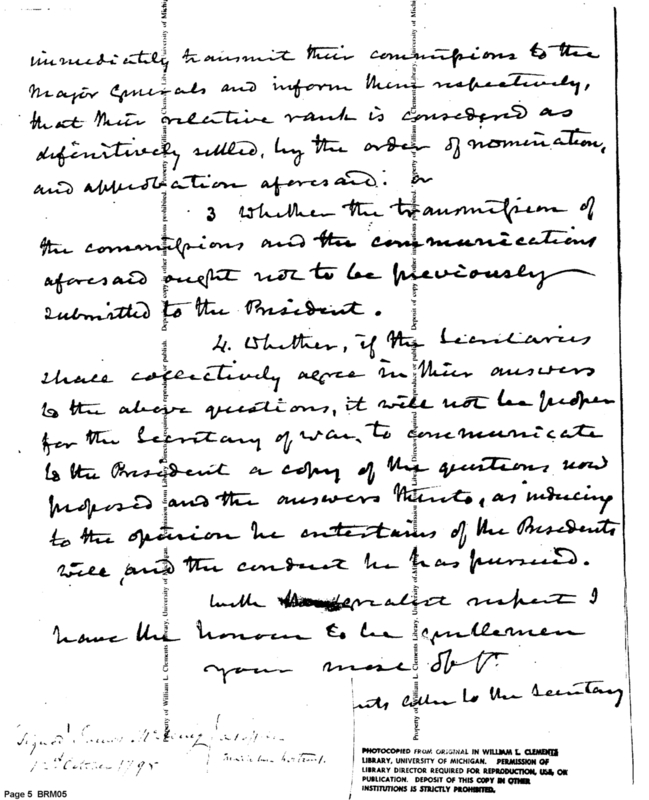 immediately transmit their commissions to the
Major Generals and inform them respectively,
that their relative rank is considered as
definitively settled, by the order of nomination,
and approbation aforesaid: or
3 Whether the transmission of
the commissions and the communications
aforesaid ought not to be previously
submitted to the President.
4. Whether, if the Secretaries
shall collectively agree in their answers
to the above questions, it will not be proper
for the Secretary of war, to communicate
to the President a copy of the questions now
proposed and the answers thereto, as inducing
to the opinion he entertains of the Presidents
will, and the conduct he has pursued.
with greatest respect I
have the honour to be gentlemen
your most obt.
to the Secretary
Signed James McHenry
October 179
PHOTOCOPIED FROM ORIGINAL IN WILLIAM L. CLEMENTS
LIBRARY, UNIVERSITY OF MICHIGAN. PERMISSION OF
LIBRARY DIRECTOR REQUIRED FOR REPRODUCTION, USE, OR
PUBLICATION. DEPOSIT OF THIS COPY IN OTHER
INSTITUTIONS IS STRICTLY PROHIBITED.
Page 5 BRM05
Property of William L. Clements Library, University of Michigan. Permission from Library Director required to reproduce or publish. Deposit of copy in other institutions prohibited.